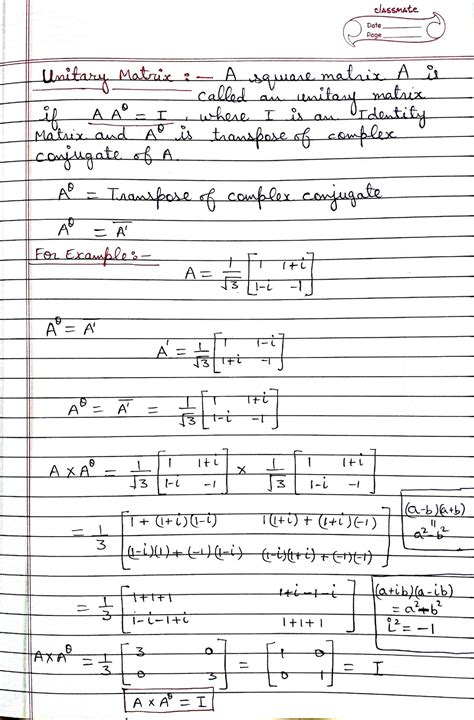 classmate
Date
Page
Unitary Matrix :- A square matrix A is
called an unitary matrix
if A A^θ = I, where I is an Identity
Matrix and A^θ is transpose of complex
conjugate of A.
A^θ = Transpose of complex conjugate
A^θ = \overline{A'}
For Example:-
A = 1/√3 [1 1+i; 1-i -1]
A^θ = \overline{A'}
A' = 1/√3 [1 1-i; 1+i -1]
A^θ = \overline{A'} = 1/√3 [1 1+i; 1-i -1]
A×A^θ = 1/√3 [1 1+i; 1-i -1] × 1/√3 [1 1+i; 1-i -1]
= 1/3 [1+(1+i)(1-i) 1(1+i)+(1+i)(-1); (1-i)(1)+(-1)(1-i) (1-i)(1+i)+(-1)(-1)]
(a-b)(a+b)
=
a²-b²
= 1/3 [1+1+1 1+i-1-i; 1-i-1+i 1+1+1]
(a+ib)(a-ib)
= a²+b²
i² = -1
A×A^θ = 1/3 [3 0; 0 3] = [1 0; 0 1] = I
A×A^θ = I